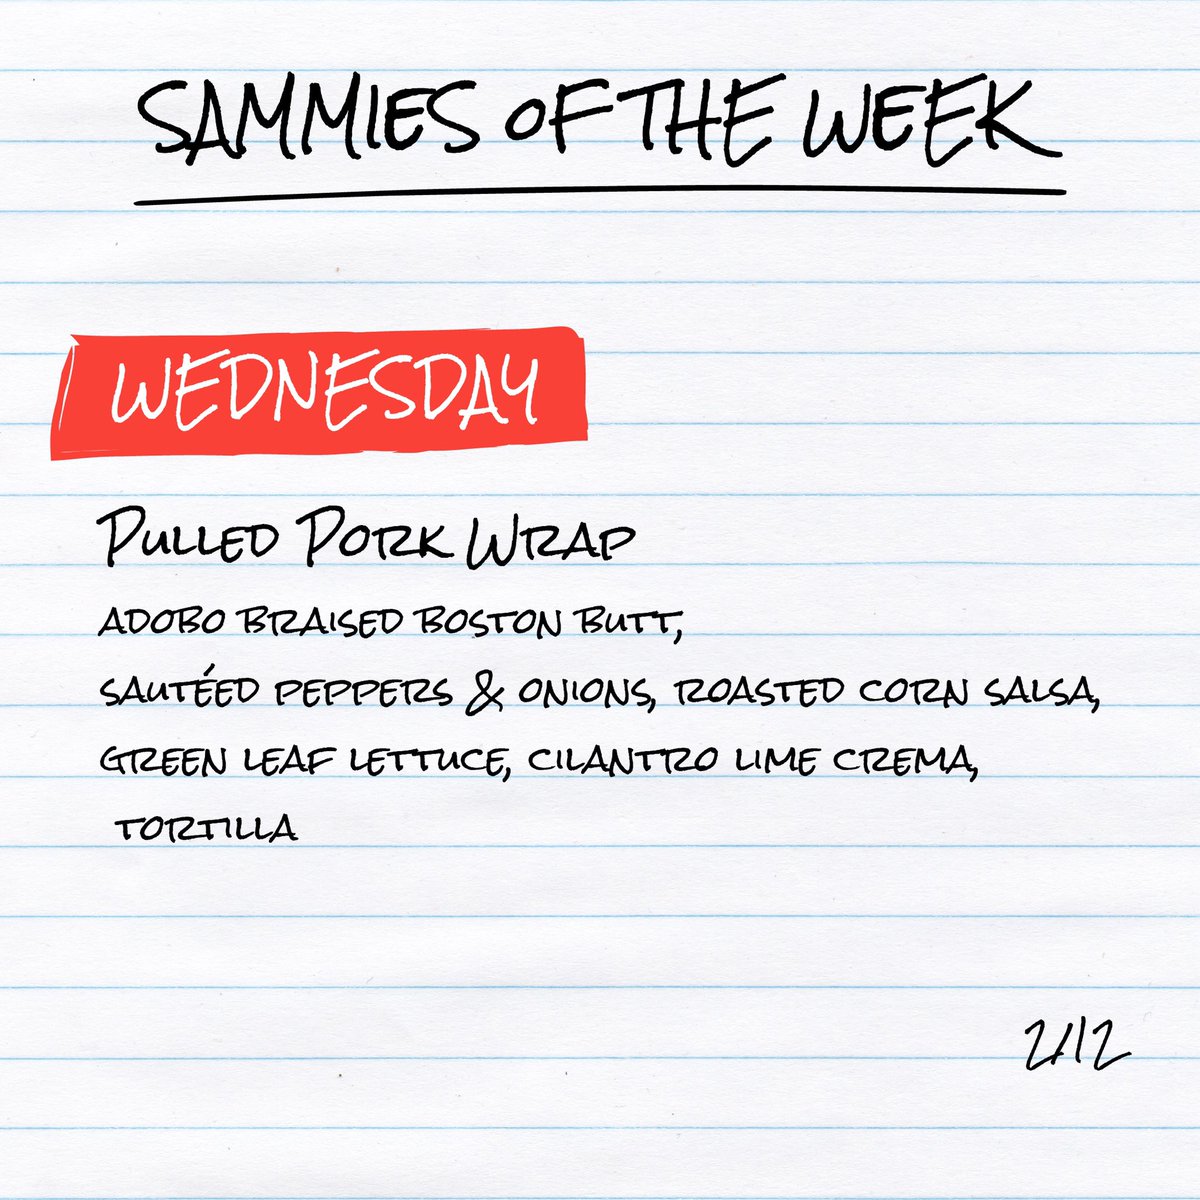 SAMMIES OF THE WEEK
WEDNESDAY
PULLED PORK WRAP
ADOBO BRAISED BOSTON BUTT,
SAUTÉED PEPPERS & ONIONS, ROASTED CORN SALSA,
GREEN LEAF LETTUCE, CILANTRO LIME CREMA,
TORTILLA
2/12